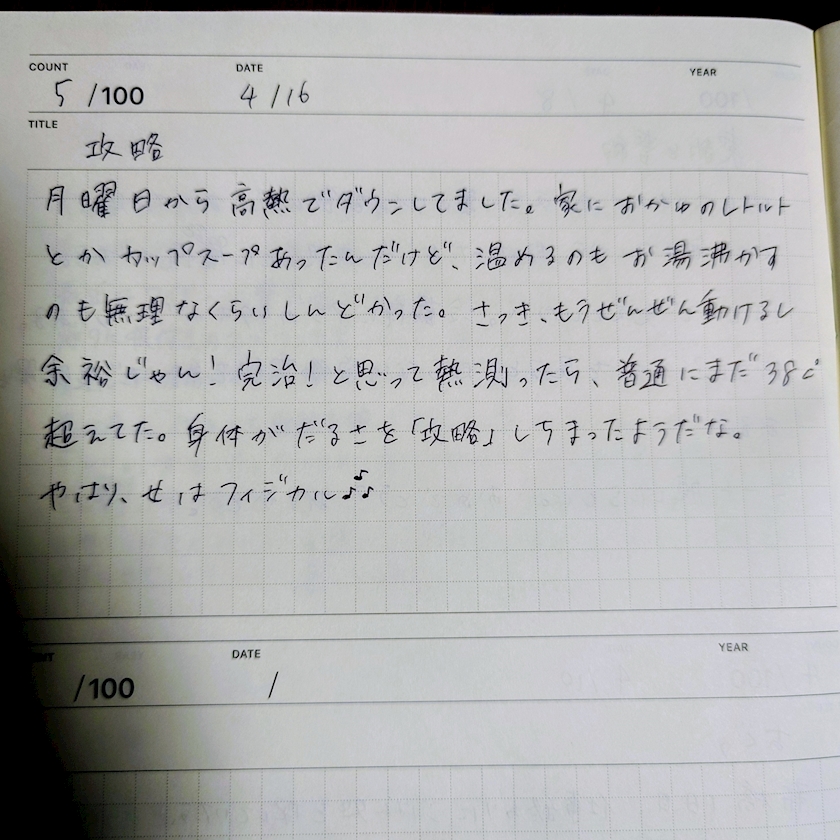 COUNT DATE YEAR
5 /100 4/16
TITLE
攻略
月曜日から高熱でダウンしてました。家におかゆのレトルト
とかカップスープあったんだけど、温めるのもお湯沸かす
のも無理なくらいしんどかった。さっき、もうぜんぜん動けるし
余裕じゃん!完治!と思って熱測ったら、普通にまだ38℃
超えてた。身体がだるさを「攻略」しちまったようだな。
やはり、せはフィジカル♪♪♪
DATE YEAR
/100 /